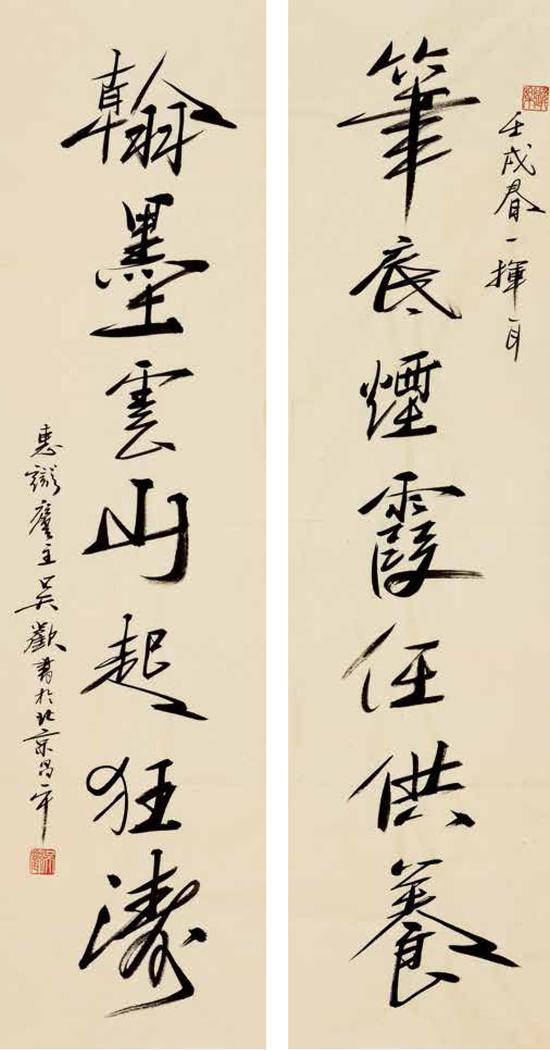 壬戌春一揮耳
筆底煙霞任供養
翰墨雲山起狂濤
主吳歡書於北京昌平